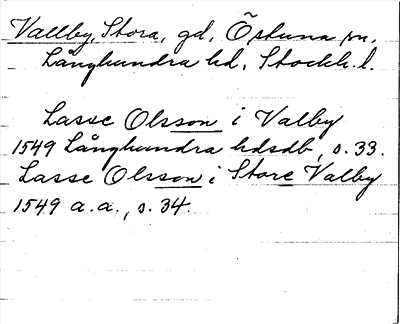 Vallby, Stora, gd, Östuna sn,
Långhundra hd, Stockh. l.
Lasse Olsson i Valby
1549 Långhundra hdsdb, s. 33.
Lasse Olsson i Store Valby
1549 a.a., s. 34.